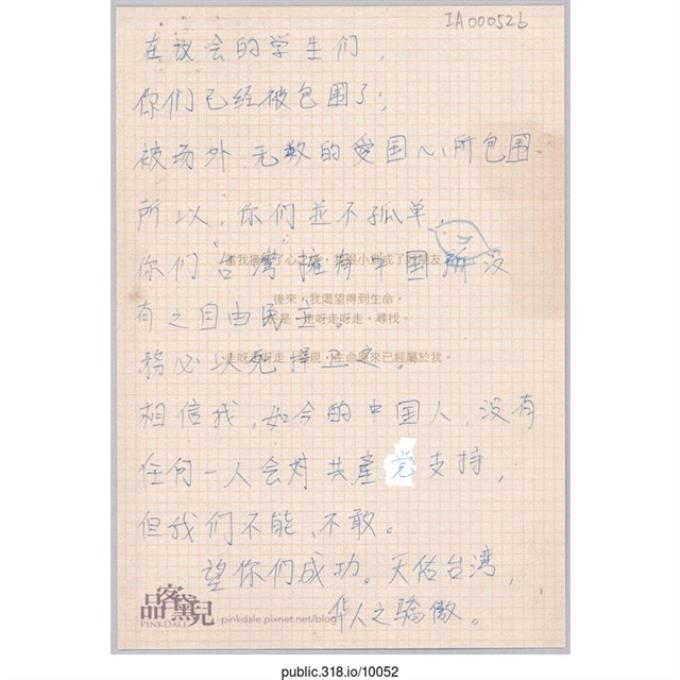 IA000526
在议会的学生们，
你们已经被包围了；
被场外 无数的爱国心所包围.
所以，你们並不孤单.
你们 台灣 擁有中国所没
後來，我渴望得到生命，
有之自由民主。
走呀走呀走、尋找。
務必以死捍卫之。
生命原來已經屬於我。
相信我，如今的中国人，没有
任何一人会对共產党支持，
但我们不能、不敢。
望你们成功。天佑台湾，
华人之骄傲。
品客黛兒
PINKDALE
pinkdale.pixnet.net/blog
public.318.io/10052